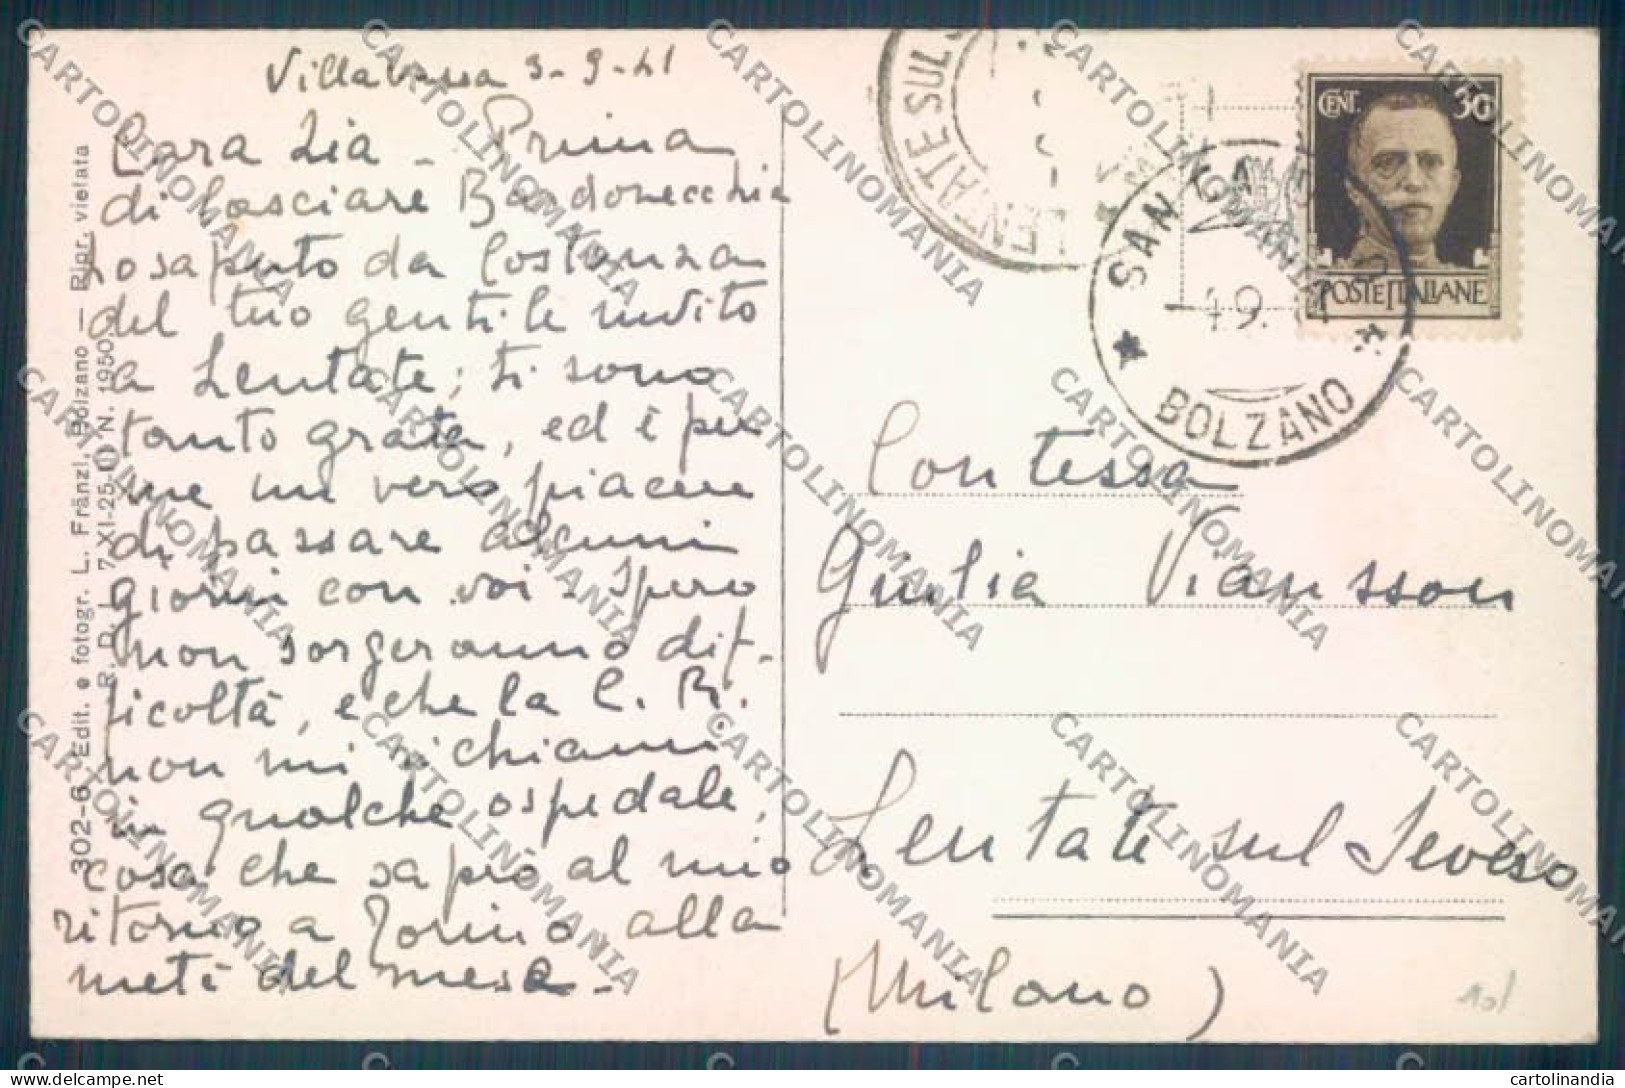 Villabassa 3-9-41
Cara Zia - Prima
di lasciare Bardonecchia
ho saputo da Costanza
del tuo gentile invito
a Lentate; ti sono
tanto grata, ed è per
me un vero piacere
di passare alcuni
giorni con voi. Spero
non sorgeranno dif-
ficoltà, e che la C. R.
non mi richiami
in qualche ospedale,
cosa che saprò al mio
ritorno a Torino, alla
metà del mese.
302-6 Edit. e fotogr. L. Fränzl, Bolzano — Ripr. vietata
R. D. L. 7-XI-25-(I) N. 1950.
LENTATE SUL
CENT. 30
POSTE ITALIANE
SAN CANDIDO
49.
BOLZANO
Contessa
Giulia Viansson
Lentate sul Seveso
(Milano)
CARTOLINOMANIA
cartolinandia